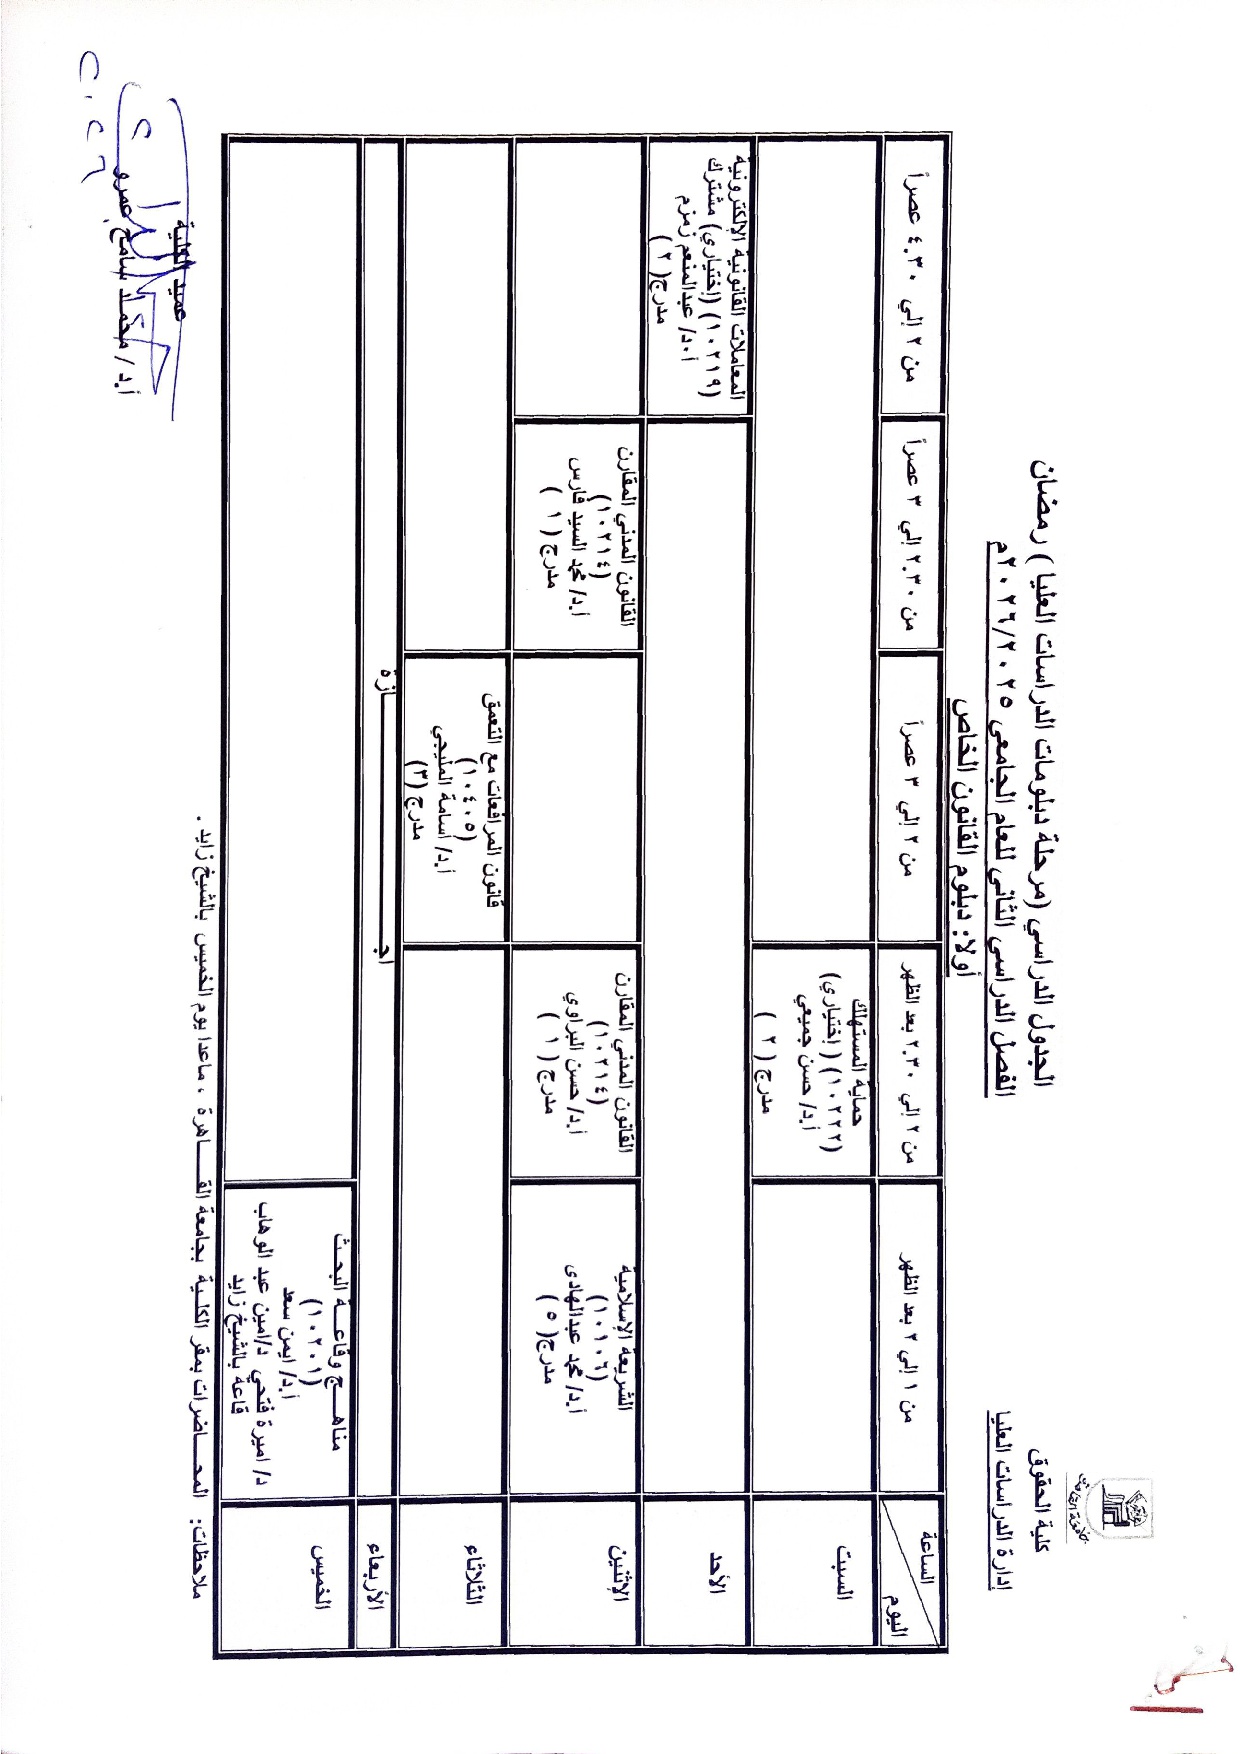 جامعة القاهرة
كلية الحقوق
إدارة الدراسات العليا
الجدول الدراسي (مرحلة دبلومات الدراسات العليا ) رمضان
الفصل الدراسي الثاني للعام الجامعي ٢٠٢٦/٢٠٢٥م
أولا: دبلوم القانون الخاص
الساعة
اليوم
من ١ إلي ٢ بعد الظهر
من ٢ إلي ٢.٣٠ بعد الظهر
من ٢ إلي ٣ عصراً
من ٢.٣٠ إلي ٣ عصراً
من ٢ إلي ٤.٣٠ عصراً
السبت
حماية المستهلك
(١٠٢٢٢) (إختياري)
أ.د/ حسن جميعي
مدرج ( ٢ )
الأحد
المعاملات القانونية الإلكترونية
(١٠٢١٩) (إختياري) مشترك
أ.د/ عبدالمنعم زمزم
مدرج( ٢ )
الإثنين
الشريعة الإسلامية
(١٠١٠٦)
أ.د/ محمد عبدالهادى
مدرج( ٥ )
القانون المدني المقارن
(١٠٢١٤)
أ.د/ حسن البراوي
مدرج ( ١ )
القانون المدني المقارن
(١٠٢١٤)
أ.د/ محمد السيد فارس
مدرج ( ١ )
الثلاثاء
قانون المرافعات مع التعمق
(١٠٤٠٥)
أ.د/ أسامة المليجي
مدرج (٣)
الأربعاء
اجـــــــازة
الخميس
مناهــج وقاعــة البحث
(١٠٢٠١)
أ.د/ ايمن سعد
د/ اميرة فتحي د/امين عبد الوهاب
قاعة بالشيخ زايد
ملاحظات: المحــاضرات بمقر الكلية بجامعة القــــاهرة ، ماعدا يوم الخميس بالشيخ زايد .
عميد الكلية
أ.د/ محمد سامح عمرو
٢٠٢٦